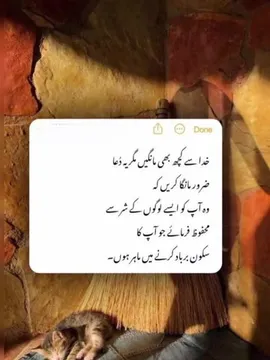 Done
خدا سے کچھ بھی مانگیں مگر یہ دُعا
ضرور مانگا کریں کہ
وہ آپ کو ایسے لوگوں کے شر سے
محفوظ فرمائے جو آپ کا
سکون برباد کرنے میں ماہر ہوں۔